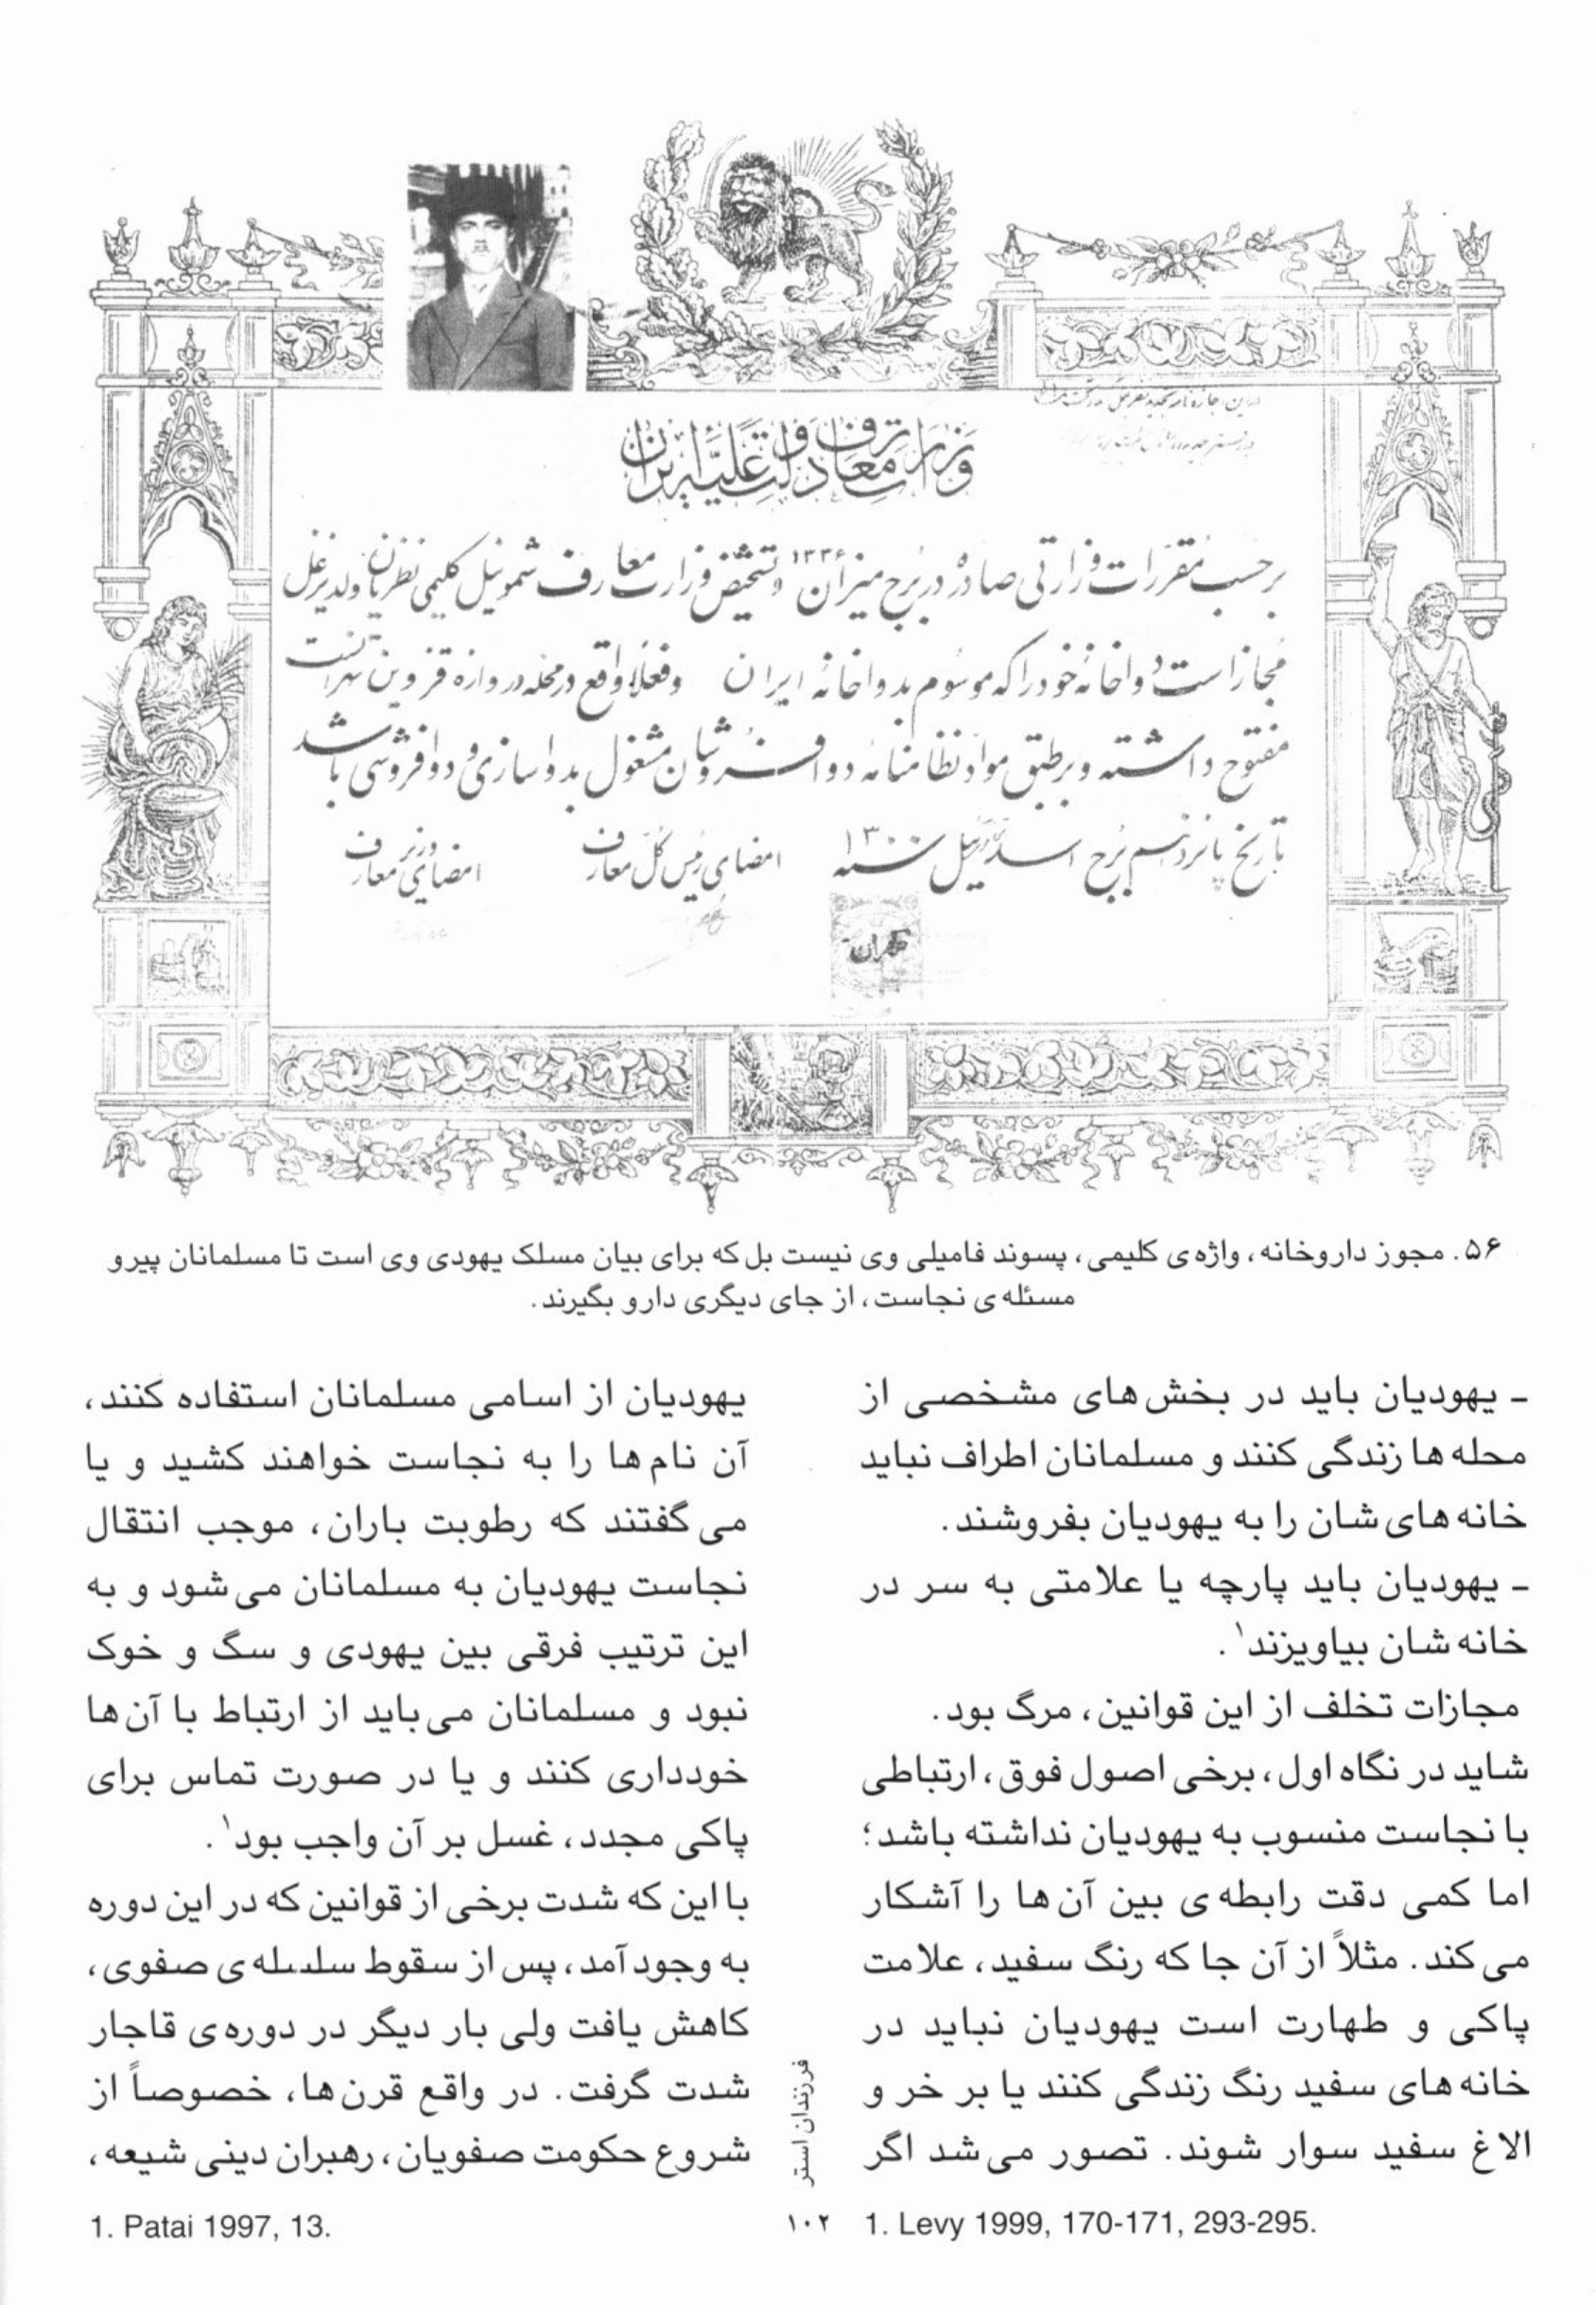 وزارت معارف دولت علیّه ایران
برحسب مقررات وزارتی صادره در برج میزان ۱۳۳۶ و تشخیص وزارت معارف شموئیل کلیمی نظریان ولد یزغل
مجاز است دواخانه خود را که موسوم بدواخانه ایران وفعلا واقع در محله دروازه قزوین تهرانست
مفتوح داشته و برطبق مواد نظامنامه دوافروشان مشغول بدواسازی و دوافروشی باشد
تاریخ پانزدهم برج اسد ئیل سنه ۱۳۰۰
امضای رئیس کل معارف
امضای وزیر معارف
طهران
۵۶. مجوز داروخانه، واژه‌ی کلیمی، پسوند فامیلی وی نیست بل‌که برای بیان مسلک یهودی وی است تا مسلمانان پیرو
مسئله‌ی نجاست، از جای دیگری دارو بگیرند.
ـ یهودیان باید در بخش‌های مشخصی از
محله‌ها زندگی کنند و مسلمانان اطراف نباید
خانه‌های‌شان را به یهودیان بفروشند.
ـ یهودیان باید پارچه یا علامتی به سر در
خانه‌شان بیاویزند۱.
مجازات تخلف از این قوانین، مرگ بود.
شاید در نگاه اول، برخی اصول فوق، ارتباطی
با نجاست منسوب به یهودیان نداشته باشد؛
اما کمی دقت رابطه‌ی بین آن‌ها را آشکار
می‌کند. مثلاً از آن جا که رنگ سفید، علامت
پاکی و طهارت است یهودیان نباید در
خانه‌های سفید رنگ زندگی کنند یا بر خر و
الاغ سفید سوار شوند. تصور می‌شد اگر
1. Levy 1999, 170-171, 293-295.
یهودیان از اسامی مسلمانان استفاده کنند،
آن نام‌ها را به نجاست خواهند کشید و یا
می‌گفتند که رطوبت باران، موجب انتقال
نجاست یهودیان به مسلمانان می‌شود و به
این ترتیب فرقی بین یهودی و سگ و خوک
نبود و مسلمانان می‌باید از ارتباط با آن‌ها
خودداری کنند و یا در صورت تماس برای
پاکی مجدد، غسل بر آن واجب بود۱.
با این که شدت برخی از قوانین که در این دوره
به وجود آمد، پس از سقوط سلسله‌ی صفوی،
کاهش یافت ولی بار دیگر در دوره‌ی قاجار
شدت گرفت. در واقع قرن‌ها، خصوصاً از
شروع حکومت صفویان، رهبران دینی شیعه،
1. Patai 1997, 13.
فرزندان استر
۱۰۲